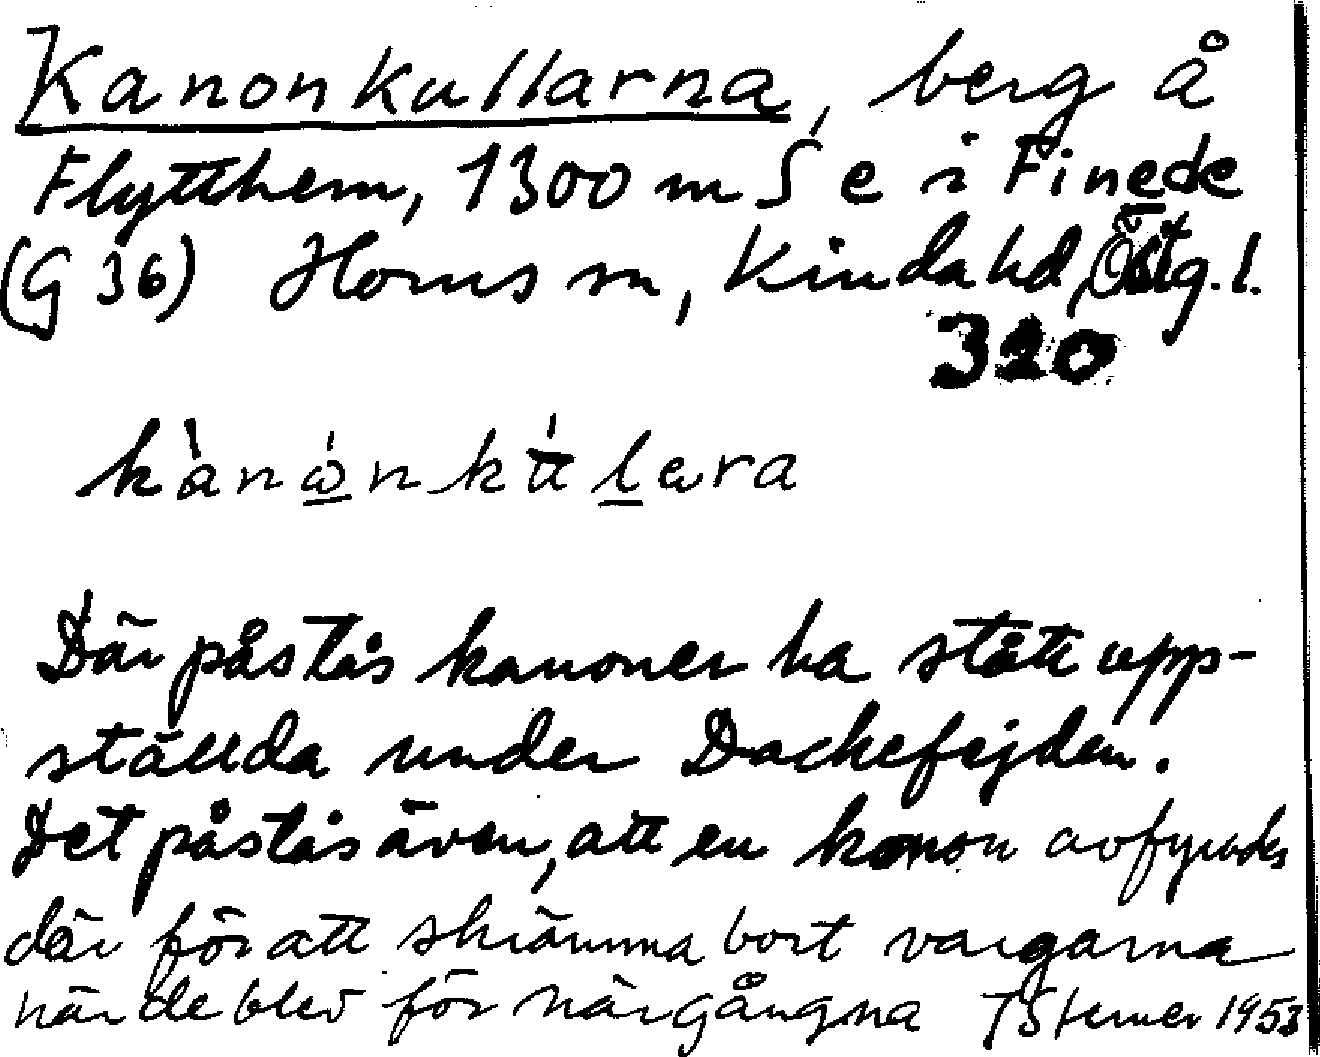 Kanonkullarna, berg å
Flytthem, 1300 m S e i Finede
(G 36) Horns sn, Kinda hd, Östg.l.
320
kànώnkuḻɷra
Där påstås kanoner ha stått upp-
ställda under Dackefejden.
Det påstås även, att en kanon avfyrades
där för att skrämma bort vargarna
när de blev för närgångna T Sterner 1953